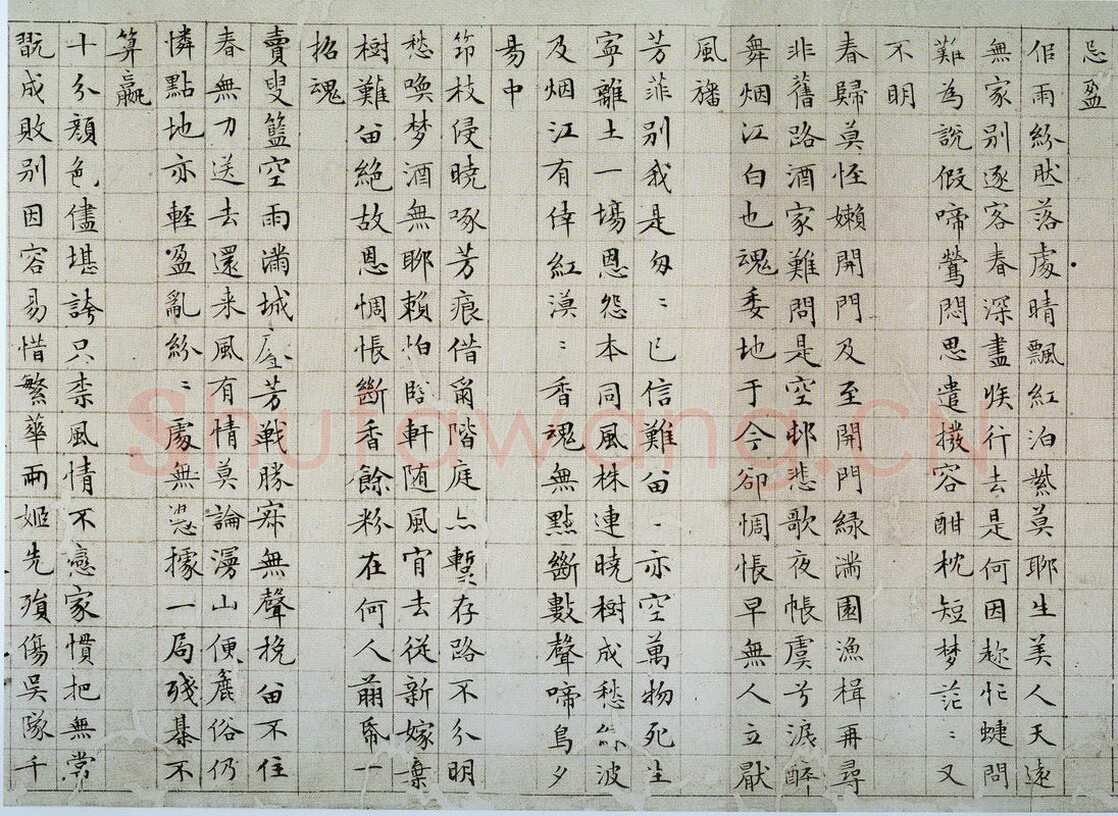 忌盈
佀雨紛然落處晴飄紅泊紫莫聊生美人天遠
無家別逐客春深盡族行去是何因趂忙蜨問
難為說假啼鶯悶思遣撥容酣枕短梦茫〻又
不明
春歸莫恠嬾開門及至開門緑滿園漁楫再尋
非舊路酒家難問是空邨悲歌夜帳虞兮淚醉
舞烟江白也魂委地于今卻惆悵早無人立厭
風旛
芳菲別我是匆〻已信難㽞〻亦空萬物死生
寧離土一場恩怨本同風株連曉樹成愁綠波
及烟江有倖紅漠〻香魂無點斷數聲啼鳥夕
易中
筇枝侵曉啄芳痕借爾階庭亦暫存路不分明
愁喚梦酒無聊賴怕臨軒随風肎去從新嫁棄
樹難㽞絶故恩惆悵斷香餘粉在何人剪帋一
招魂
賣叟籃空雨滿城庭芳戰勝寂無聲挽㽞不住
春無刀送去還来風有情莫論漫山便麄俗仍
憐點地亦輕盈亂紛〻處無憑據一局殘棊不
算贏
十分顔色儘堪誇只柰風情不戀家慣把無常
翫成敗別因容易惜繁華兩姬先殞傷吳隊千
Shufawang.CN